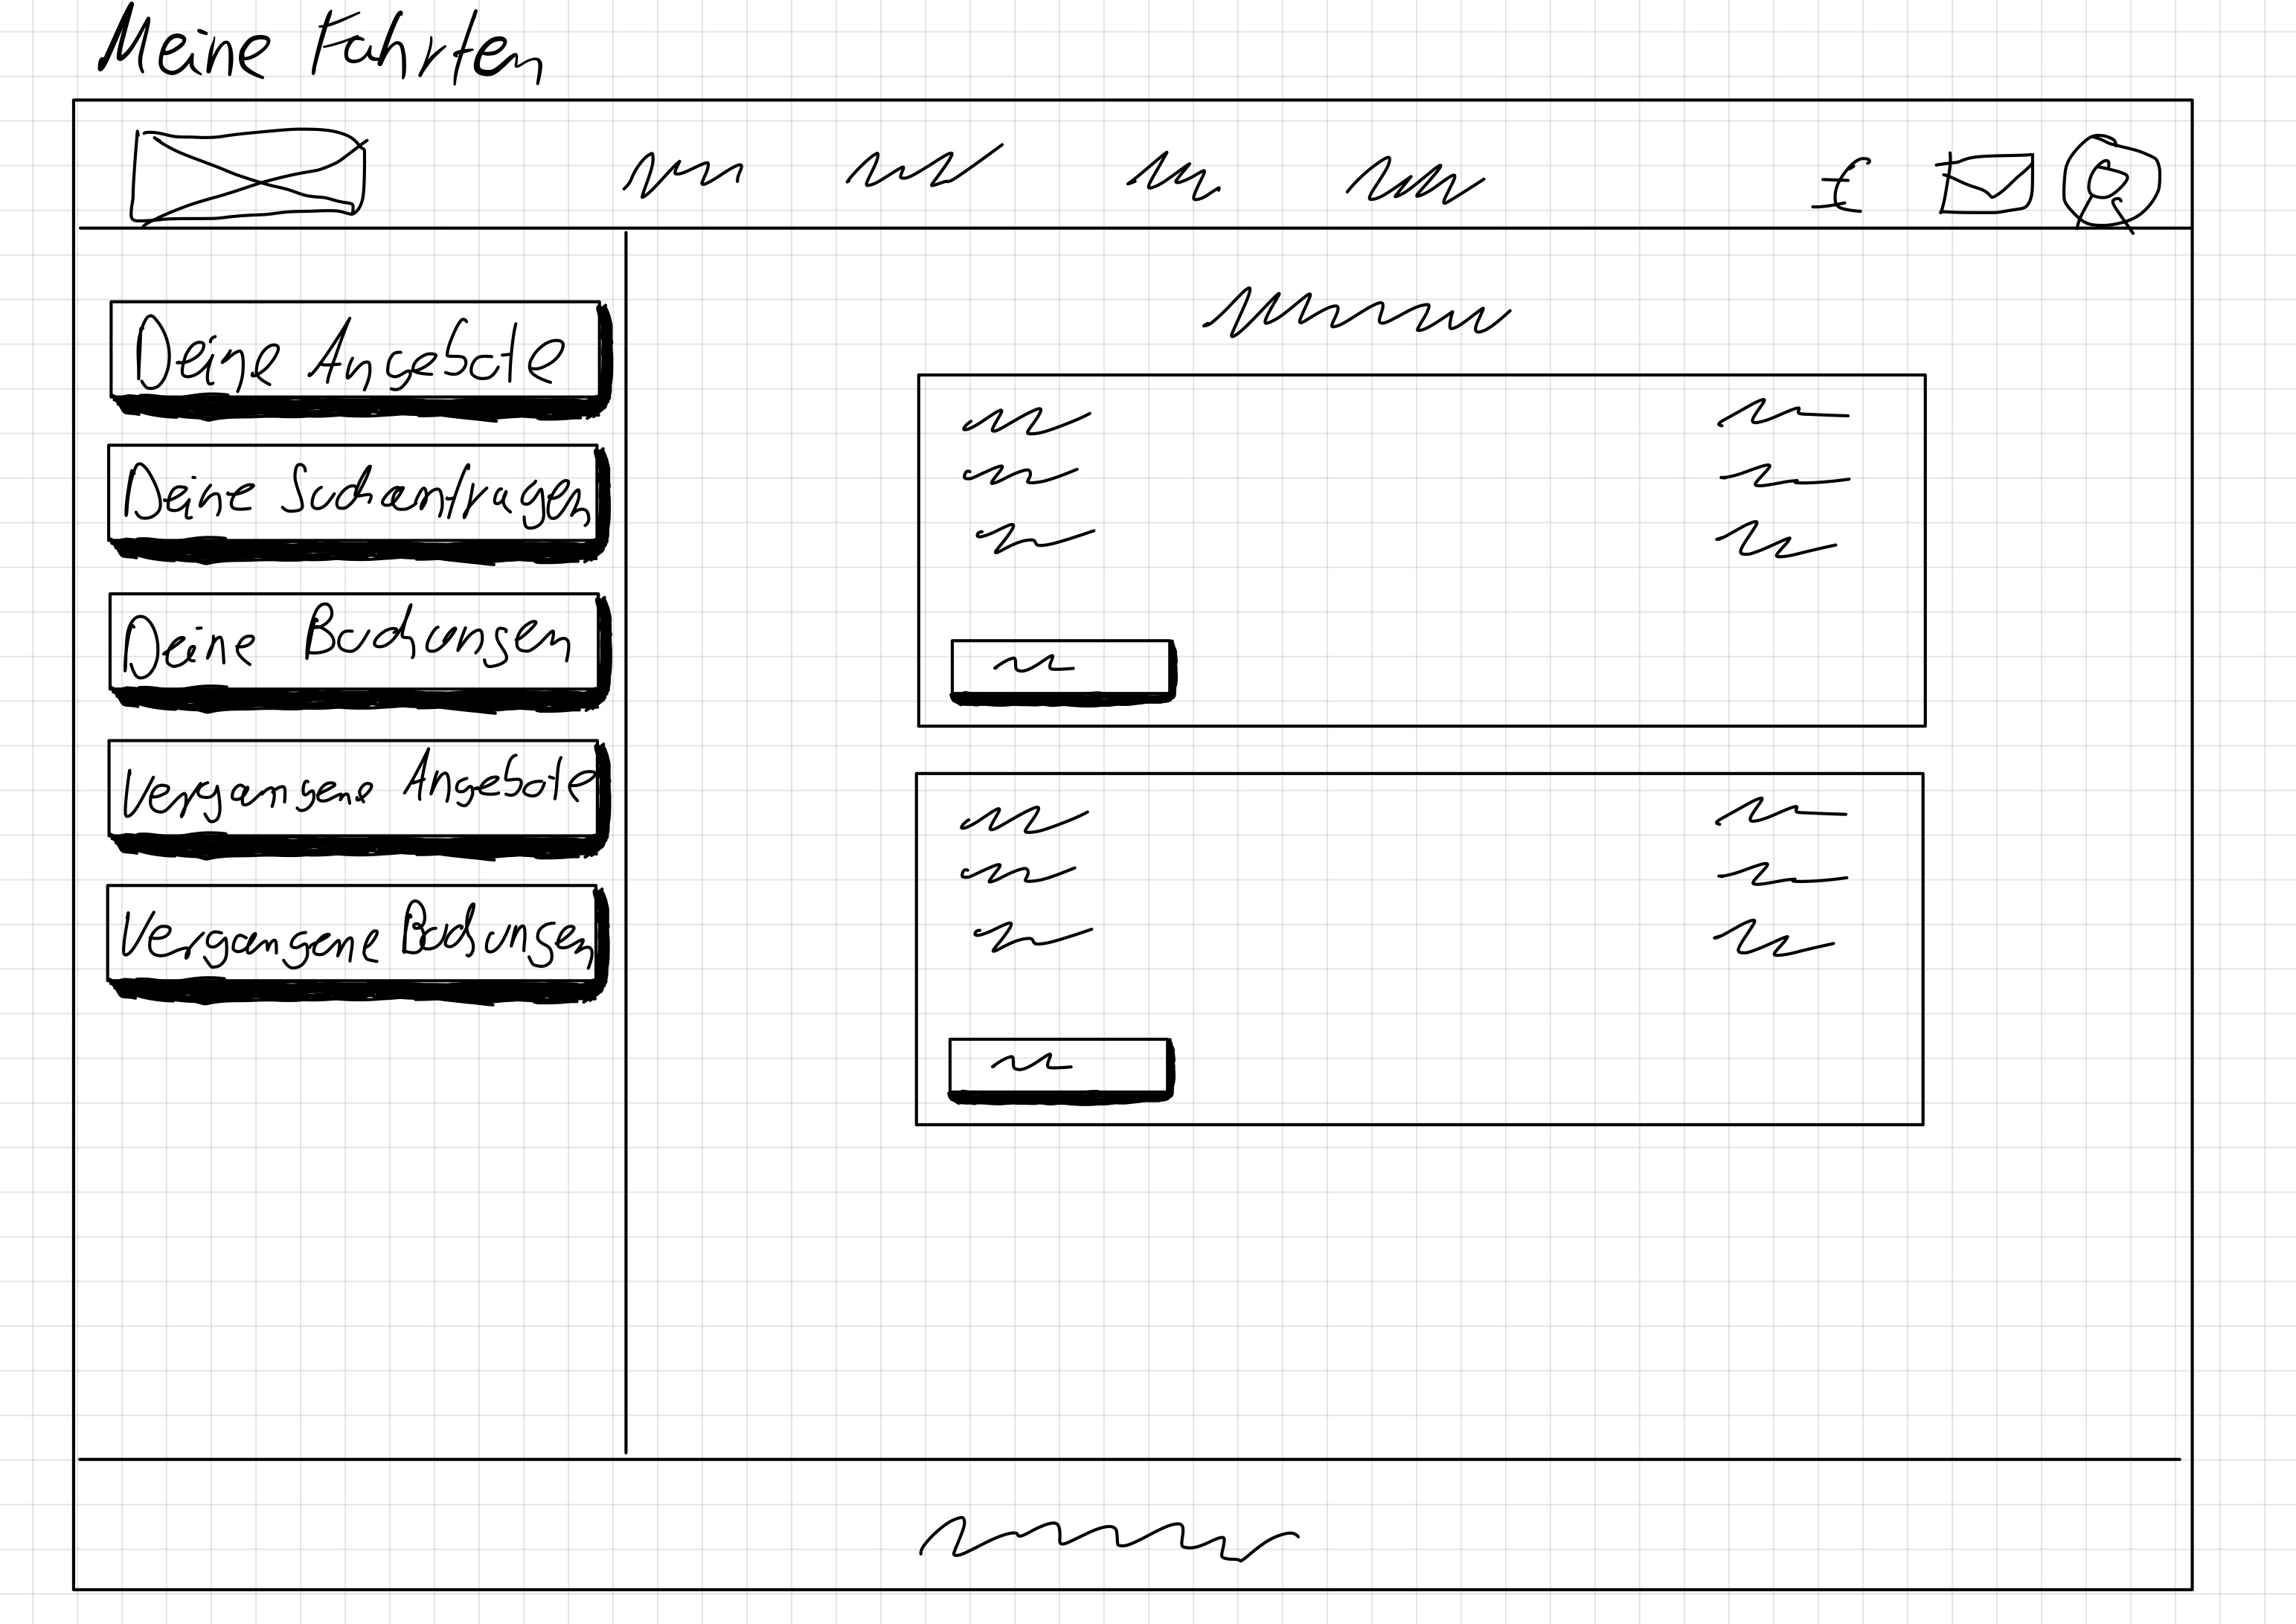 Meine Fahrten
€
Deine Angebote
Deine Suchanfragen
Deine Buchungen
Vergangene Angebote
Vergangene Buchungen